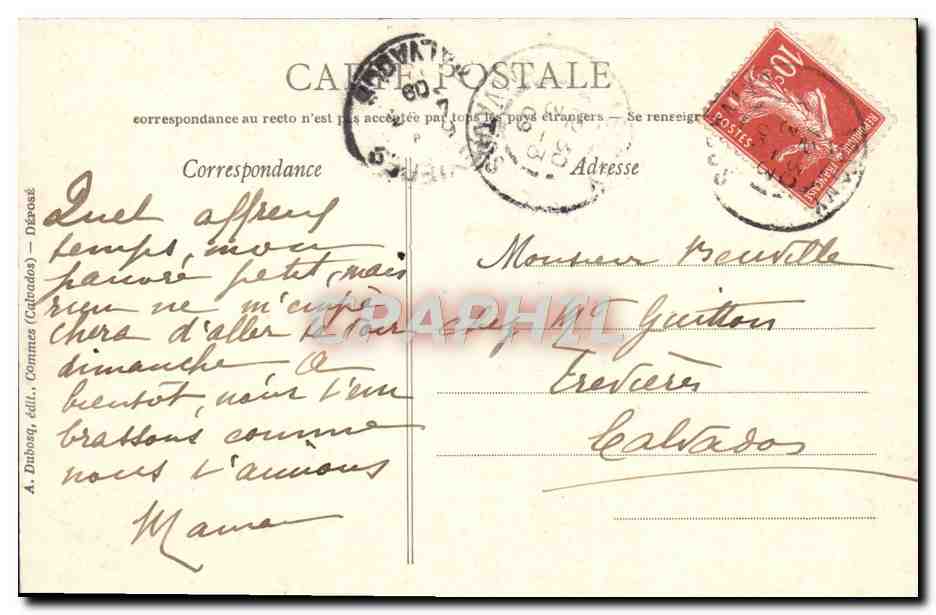 CARTE POSTALE
correspondance au recto n'est pas acceptée par tous les pays étrangers — Se renseigner
Correspondance
Adresse
10c
POSTES
REPUBLIQUE FRANÇAISE
CALVADOS
A. Dubosq, édit., Commes (Calvados) — DÉPOSÉ
Quel affreux
temps, mon
pauvre petit, mais
rien ne m'empê-
chera d'aller te voir
dimanche, A
bientôt, nous t'em
brassons comme
nous t'aimons
Maman
Monsieur Beuville
chez Mr Guitton
Trévières
Calvados
CPAPHIL